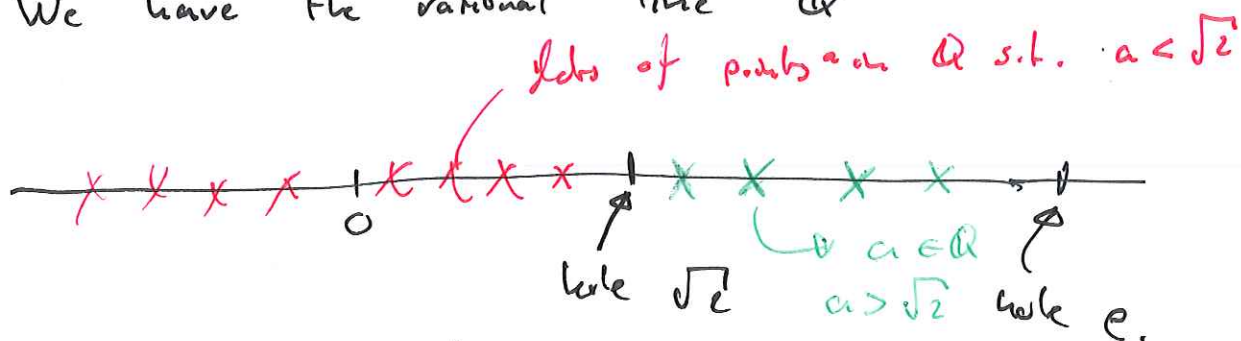 We have the rational line ℚ
lots of points a in ℚ s.t. a < √2
0
hole √2
a ∈ ℚ
a > √2
hole e.